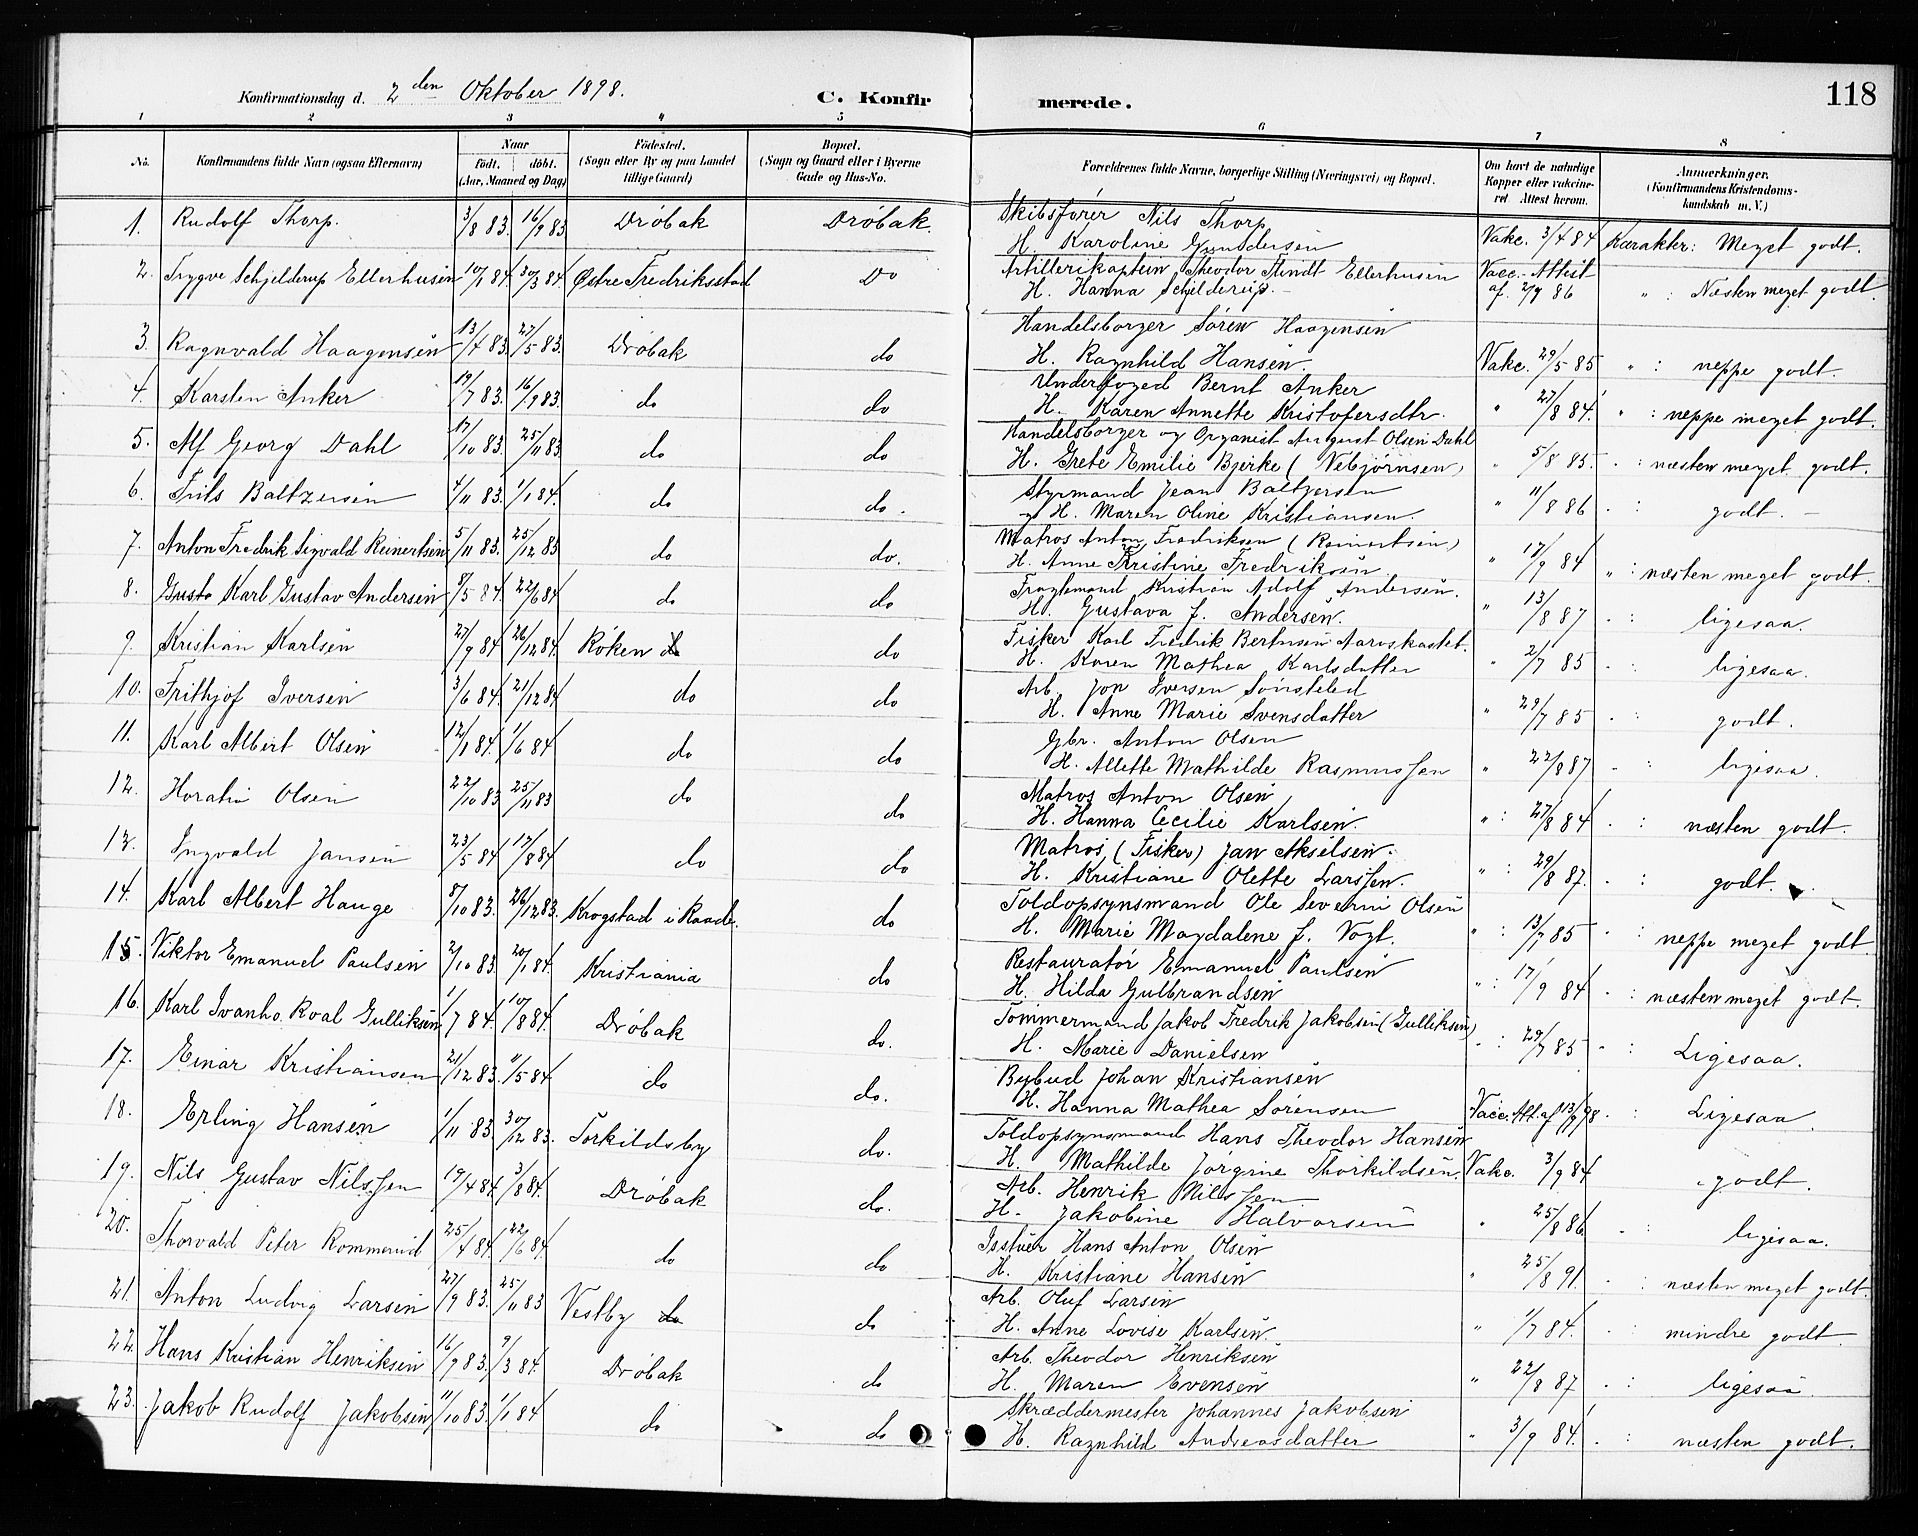 118
Konfirmationsdag d. 2den Oktober 1898. C. Konfir merede.
1 2 3 4 5 6 7 8
No. Konfirmandens fulde Navn (ogsaa Efternavn) Naar født. døbt. (Aar, Maaned og Dag) Fødested. (Sogn eller By og paa Landet tillige Gaard) Bopæl. (Sogn og Gaard eller i Byerne Gade og Hus-No. Forældrenes fulde Navne, borgerlige Stilling (Næringsvei) og Bopæl. Om havt de naturlige Kopper eller vakcineret. Attest herom. Anmerkninger. (Konfirmandens Kristendomskundskab m. V.)
1. Rudolf Thorp. 3/8 83 16/9 83 Drøbak Drøbak. Skibsfører Nils Thorp
H. Karoline Gundersen Vakc. 3/4 84 Karakter: Meget godt.
2. Trygve Schjelderup Ellerhusen 10/1 84 30/3 84 Østre Fredriksstad Do Artillerikaptein Theodor Flindt Ellerhusen Vacc.-Attest
H. Hanna Schjelderup. af 2/9 86 " : Næsten meget godt.
3. Ragnvald Haagensen 13/4 83 27/5 83. Drøbak do Handelsborger Søren Haagensen
H. Ragnhild Hansen. Vakc. 29/5 85 " : neppe godt.
4. Karsten Anker 19/7 83. 16/9 83. do do Underfoged Bernt Anker
H. Karen Annette Kristofersdtr. " 27/8 84. " : neppe meget godt.
5. Alf Georg Dahl 17/10 83. 25/11 83. do do Handelsborger og Organist August Olsen Dahl
H. Grete Emilie Bjerke (Nebjørnsen) " 5/8 85. . : næsten meget godt.
6. Frits Baltzersen 4/11 83. 1/1 84. do do. Styrmand Jean Baltzersen
og H. Maren Oline Kristiansen. " 11/8 86 . : godt. –
7. Anton Fredrik Sigvald Reinertsen 5/11 83. 25/12 83 do do. Matros Anton Fredriksen (Reinertsen)
H. Anne Kristine Fredriksen. " 17/9 84 " : næsten meget godt.
8. Gusta Karl Gustav Andersen 8/5 84. 22/6 84 do do Fragtemand Kristian Adolf Andersen.
H. Gustava f. Andersen. " 13/8 87 . : ligesaa.
9. Kristian Karlsen 27/9 84 26/12 84. Røken do do Fisker Karl Fredrik Berntsen Aaroskastet.
H. Karen Mathea Karlsdatter " 2/7 85 . : ligesaa.
10. Frithjof Iversen 3/6 84. 21/12 84 do do Arb. Jon Iversen Sønsteled
H. Anne Marie Svensdatter " 29/7 85 . : godt.
11. Karl Albert Olsen 12/1 84. 1/6 84 do do Gbr. Anton Olsen
H. Allette Mathilde Rasmussen " 22/8 87 . : ligesaa.
12. Horatio Olsen 22/10 83 25/11 83 do do Matros Anton Olsen
H. Hanna Cecilie Karlsen. " : 27/8 84 . : næsten godt.
13. Ingvald Jansen 23/5 84 17/8 84 do do Matros, (Fisker) Jan Akselsen.
H. Kristiane Olette Larssen. " : 29/8 87. . : godt.
14. Karl Albert Hauge 8/10 83. 26/12 83. Krogstad i Raade. do Toldopsynsmand Ole Severin Olsen
H. Marie Magdalene f. Vogt. " : 13/7 85 . : neppe meget godt
15. Viktor Emanuel Paulsen 2/10 83. 20/1 84. Kristiania do Restauratør Emanuel Paulsen
H. Hilda Gulbrandsen " : 17/9 84 . : næsten meget godt.
16. Karl Ivanho Roal Gulliksen 1/7 84. 10/8 84. Drøbak do. Tømmermand Jakob Fredrik Jakobsen (Gulliksen)
H. Marie Danielsen " : 29/7 85 " : Ligesaa.
17. Einar Kristiansen 21/12 83. 11/5 84 do do. Bybud Johan Kristiansen
H. Hanna Mathea Sørensen Vacc. Att. af 13/9 98 . : Ligesaa.
18. Erling Hansen 1/11 83. 30/12 83. Torkildsby do. Toldopsynsmand Hans Theodor Hansen
H. Mathilde Jørgine Thorkildsen. Vakc. 3/9 84 . godt.
19. Nils Gustav Nilssen 19/4 84. 3/8 84. Drøbak do. Arb. Henrik Nilssen
H. Jakobine Halvorsen " 25/8 86. . : ligesaa.
20. Thorvald Peter Rommerud 25/4 84. 22/6 84. do do Isstuer Hans Anton Olsen
H. Kristiane Hansen " 25/8 91. . : næsten meget godt.
21. Anton Ludvig Larsen 27/9 83. 25/11 83 Vestby do do Arb. Oluf Larsen
H. Anne Lovise Karlsen. " 1/7 84. . : mindre godt
22. Hans Kristian Henriksen 16/9 83. 9/3 84. Drøbak do Arb. Theodor Henriksen
H. Maren Evensen " 22/8 87 . : ligesaa.
23. Jakob Rudolf Jakobsen 11/10 83. 1/1 84 do do Skræddermester Johannes Jakobsen
H. Ragnhild Andreasdatter " 3/9 84. . : næsten godt.